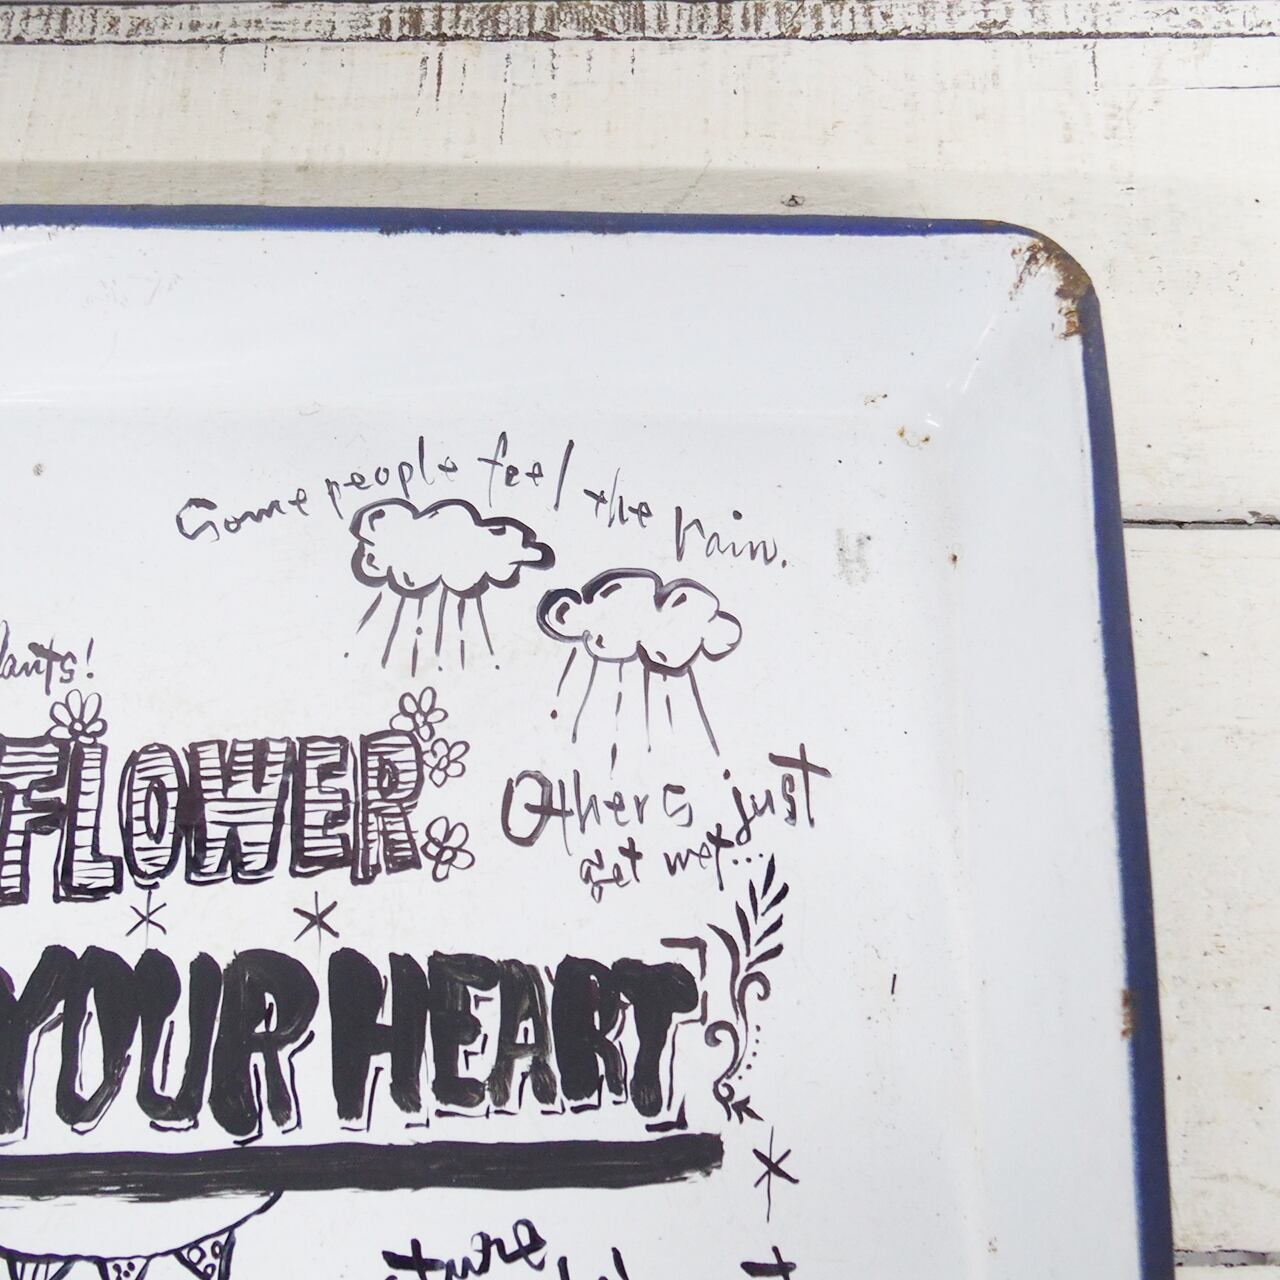 Some people feel the rain.
Others just
get wet.
FLOWER
YOUR HEART